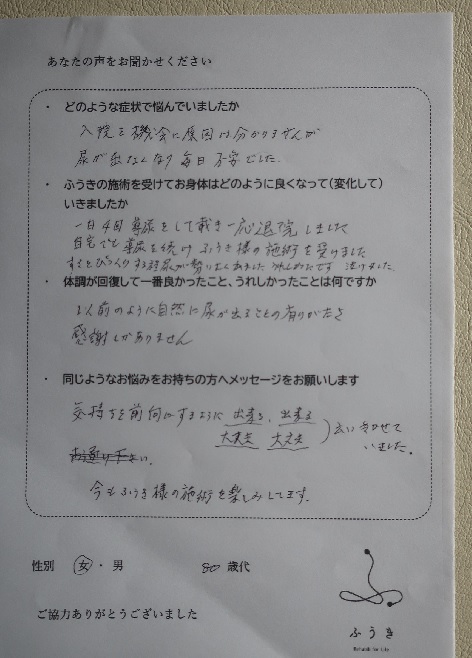 あなたの声をお聞かせください
・ どのような症状で悩んでいましたか
入院を機会に原因は分かりませんが
尿が出なくなり毎日不安でした。
・ ふうきの施術を受けてお身体はどのように良くなって(変化して)
いきましたか
一日4回導尿をして戴き一応退院しました
自宅でも導尿を続けふうき様の施術を受けました
するとびっくりする程尿が出
泣けました。
・ 体調が回復して一番良かったこと、うれしかったことは何ですか
以前のように自然に尿が出ることの有りがたさ
感謝しかありません
・ 同じようなお悩みをお持ちの方へメッセージをお願いします
気持ちを前向にするように 出来る、出来る
大丈夫 大丈夫 )言いきかせて
いました。
今もふうき様の施術を楽しみしてます。
性別 女・男 80歳代
ご協力ありがとうございました
ふうき